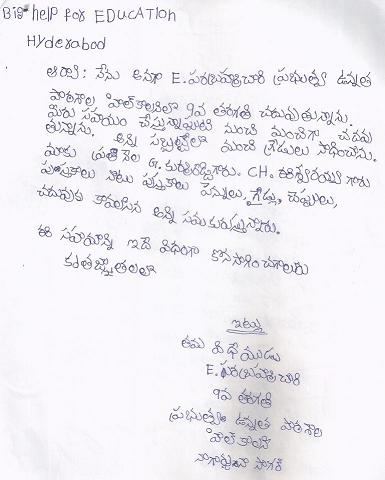 Big help for EDUCATION
Hyderabad
ఆర్యా: నేను అనగా E. ప్రభుత్వ ఉన్నత
పాఠశాల హిల్ కాలనీలో 9వ తరగతి చదువుతున్నాను.
మీరు సహాయం చేస్తున్నప్పటి నుంచి మంచిగా చదువు
తున్నాను. అన్ని సబ్జెక్టులలో మంచి గ్రేడులు సాధించాను.
మాకు ప్రతి నెల G. గారు. CH. ఈశ్వరయ్య గారు
పుస్తకాలు నోటు పుస్తకాలు పెన్నులు, డ్రెస్సు, చెప్పులు,
చదువుకు కావలసిన అన్ని సమకూరుస్తున్నారు.
ఈ సహాయాన్ని ఇదే విధంగా కొనసాగించగలరు
కృతజ్ఞతలతో
ఇట్లు
తమ విధేయుడు
E.
9వ తరగతి
ప్రభుత్వ ఉన్నత పాఠశాల
హిల్ కాలనీ
నాగార్జున సాగర్